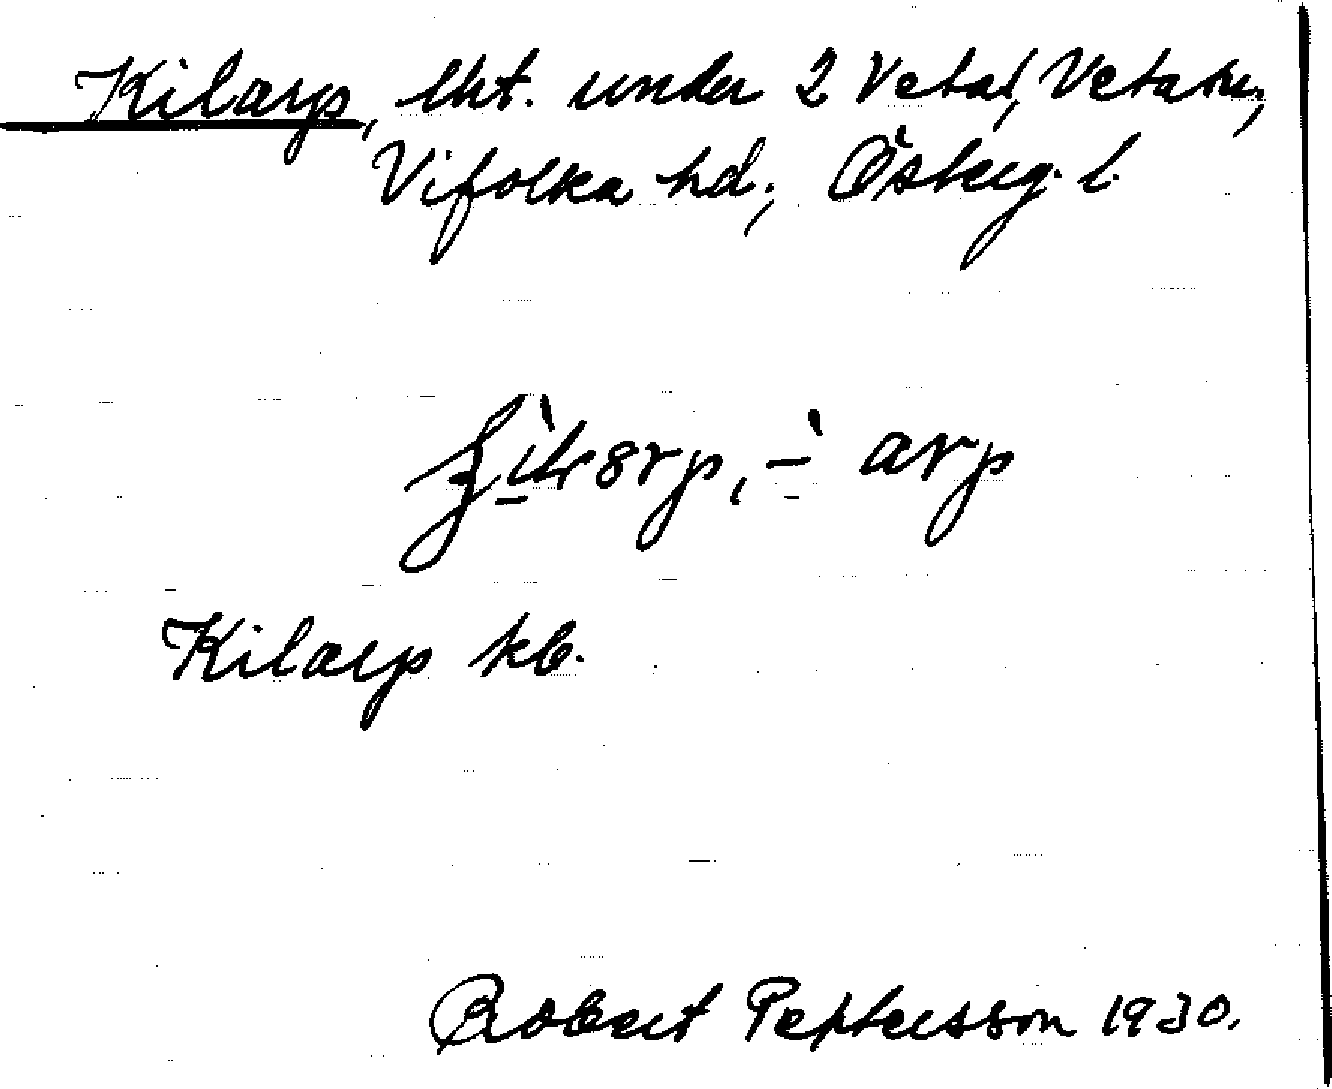 Kilarp, lht. under 2 Veta, Veta sn,
Vifolka hd., Österg. l.
arp
Kilarp kb.
Robert Pettersson 1930.